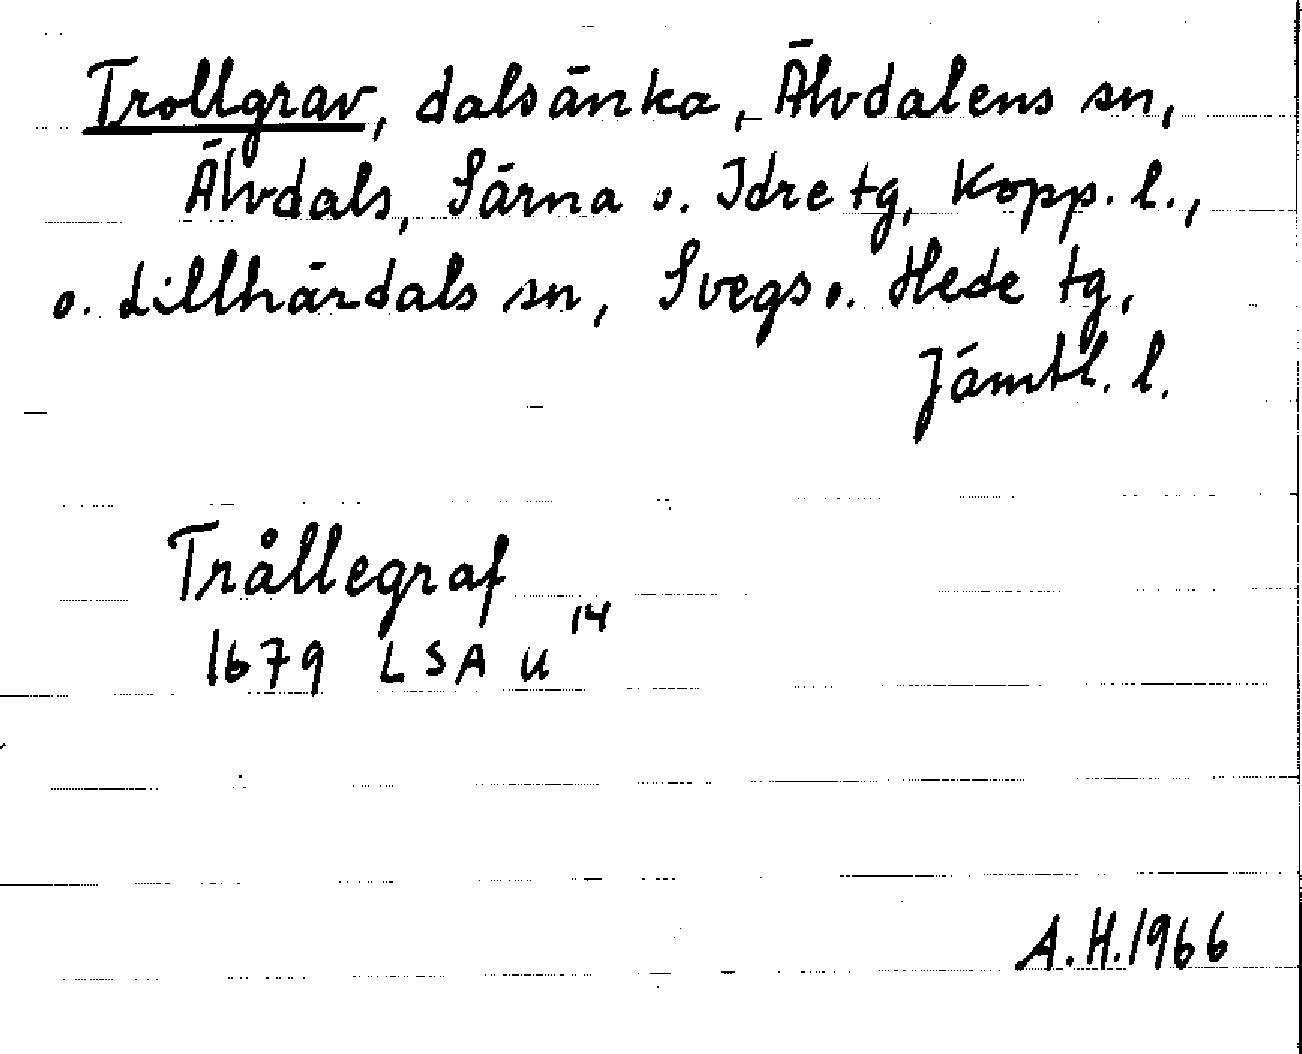 Trollgrav, dalsänka, Älvdalens sn,
Älvdals, Särna o. Idre tg, Kopp. l.,
o. Lillhärdals sn, Svegs o. Hede tg,
Jämtl. l.
Trållegraf
1679 LSA U¹⁴
A.H. 1966